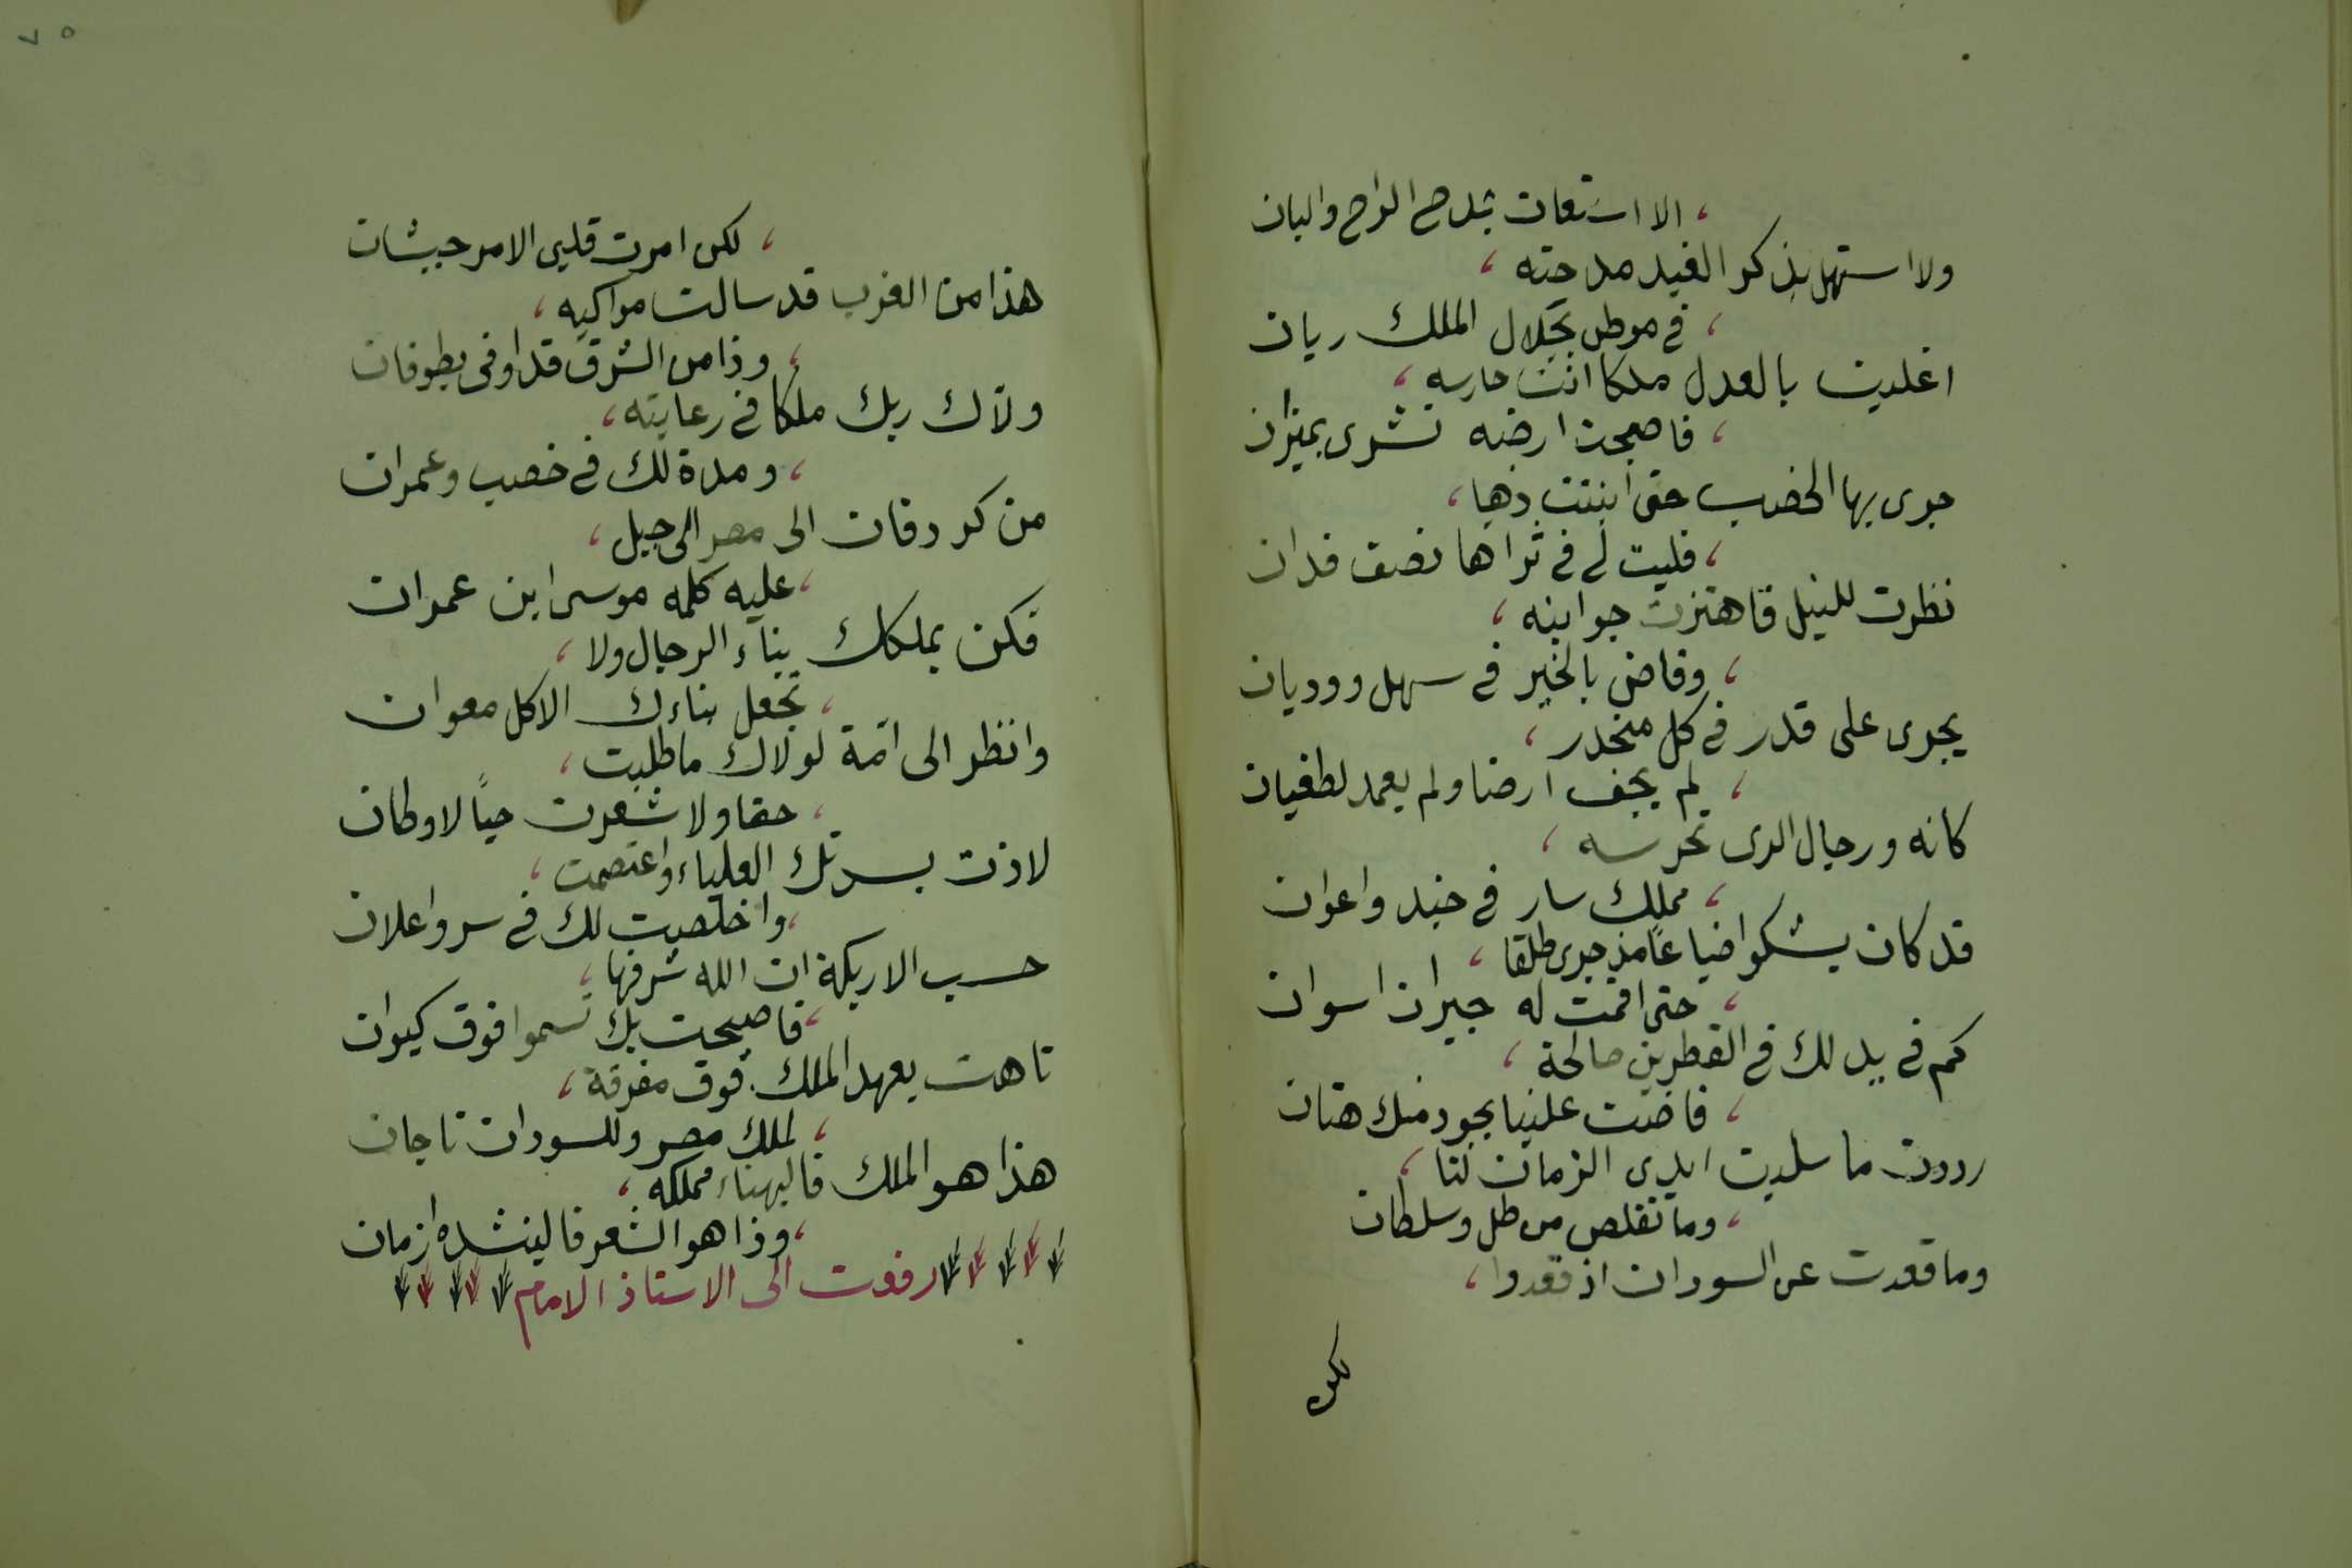 الا استعان بمدح الراح والبان
ولا استهل بذكر الغيد مدحته ،
، في موطن بجلال الملك ريان
اغليت بالعدل ملكا انت حارسه ،
، فاصبحت ارضه تشرى بميزان
جرى بها الخصب حتى انبتت ذهبا ،
، فليت لى في ثراها نصف فدان
نظرت للنيل فاهتزت جوانبه ،
، وفاض بالخير في سهل ووديان
يجرى على قدر في كل منحدر ،
، لم يجف ارضا ولم يعمد لطغيان
كانه ورجال الرى تحرسه ،
، مملك سار في جند واعوان
قد كان يشكوا ضياعًا مذ جرى طلقا ،
، حتى اقمت له جيران اسوان
كم في يد لك في القطرين صالحة ،
، فاضت علينا بجود منك هتان
رددت ما سلبت ايدى الزمان لنا ،
، وما تقلص من ظل وسلطان
وما قعدت عن السودان اذ قعدوا ،
لكن
٧٥
، لكن امرت قلبى الامر جيشان
هذا من الغرب قد سالت مواكبه ،
، وذا من الشرق قد اوفى بطوفان
ولاك ربك ملكا في رعايته ،
، ومدة لك في خصب وعمران
من كردفان الى مصر الى جبل ،
، عليه كلمه موسى ابن عمران
فكن بملكك بناء الرجال ولا ،
، تجعل بناءك الا كل معوان
وانظر الى امّة لولاك ما طلبت ،
، حقا ولا شعرت حبًا لاوطان
لاذت بسدتك العلياء واعتصمت ،
، واخلصيت لك في سر واعلان
حسب الاريكة ان الله شرفها ،
، فاصبحت بك تسموا فوق كيوان
تاهت بعهد الملك فوق مفرقة ،
، لملك مصر وللسودان تاجان
هذا هو الملك فاليهناء مملكه ،
، وذا هو الشعر فالينشده ازمان
رفعت الى الاستاذ الامام